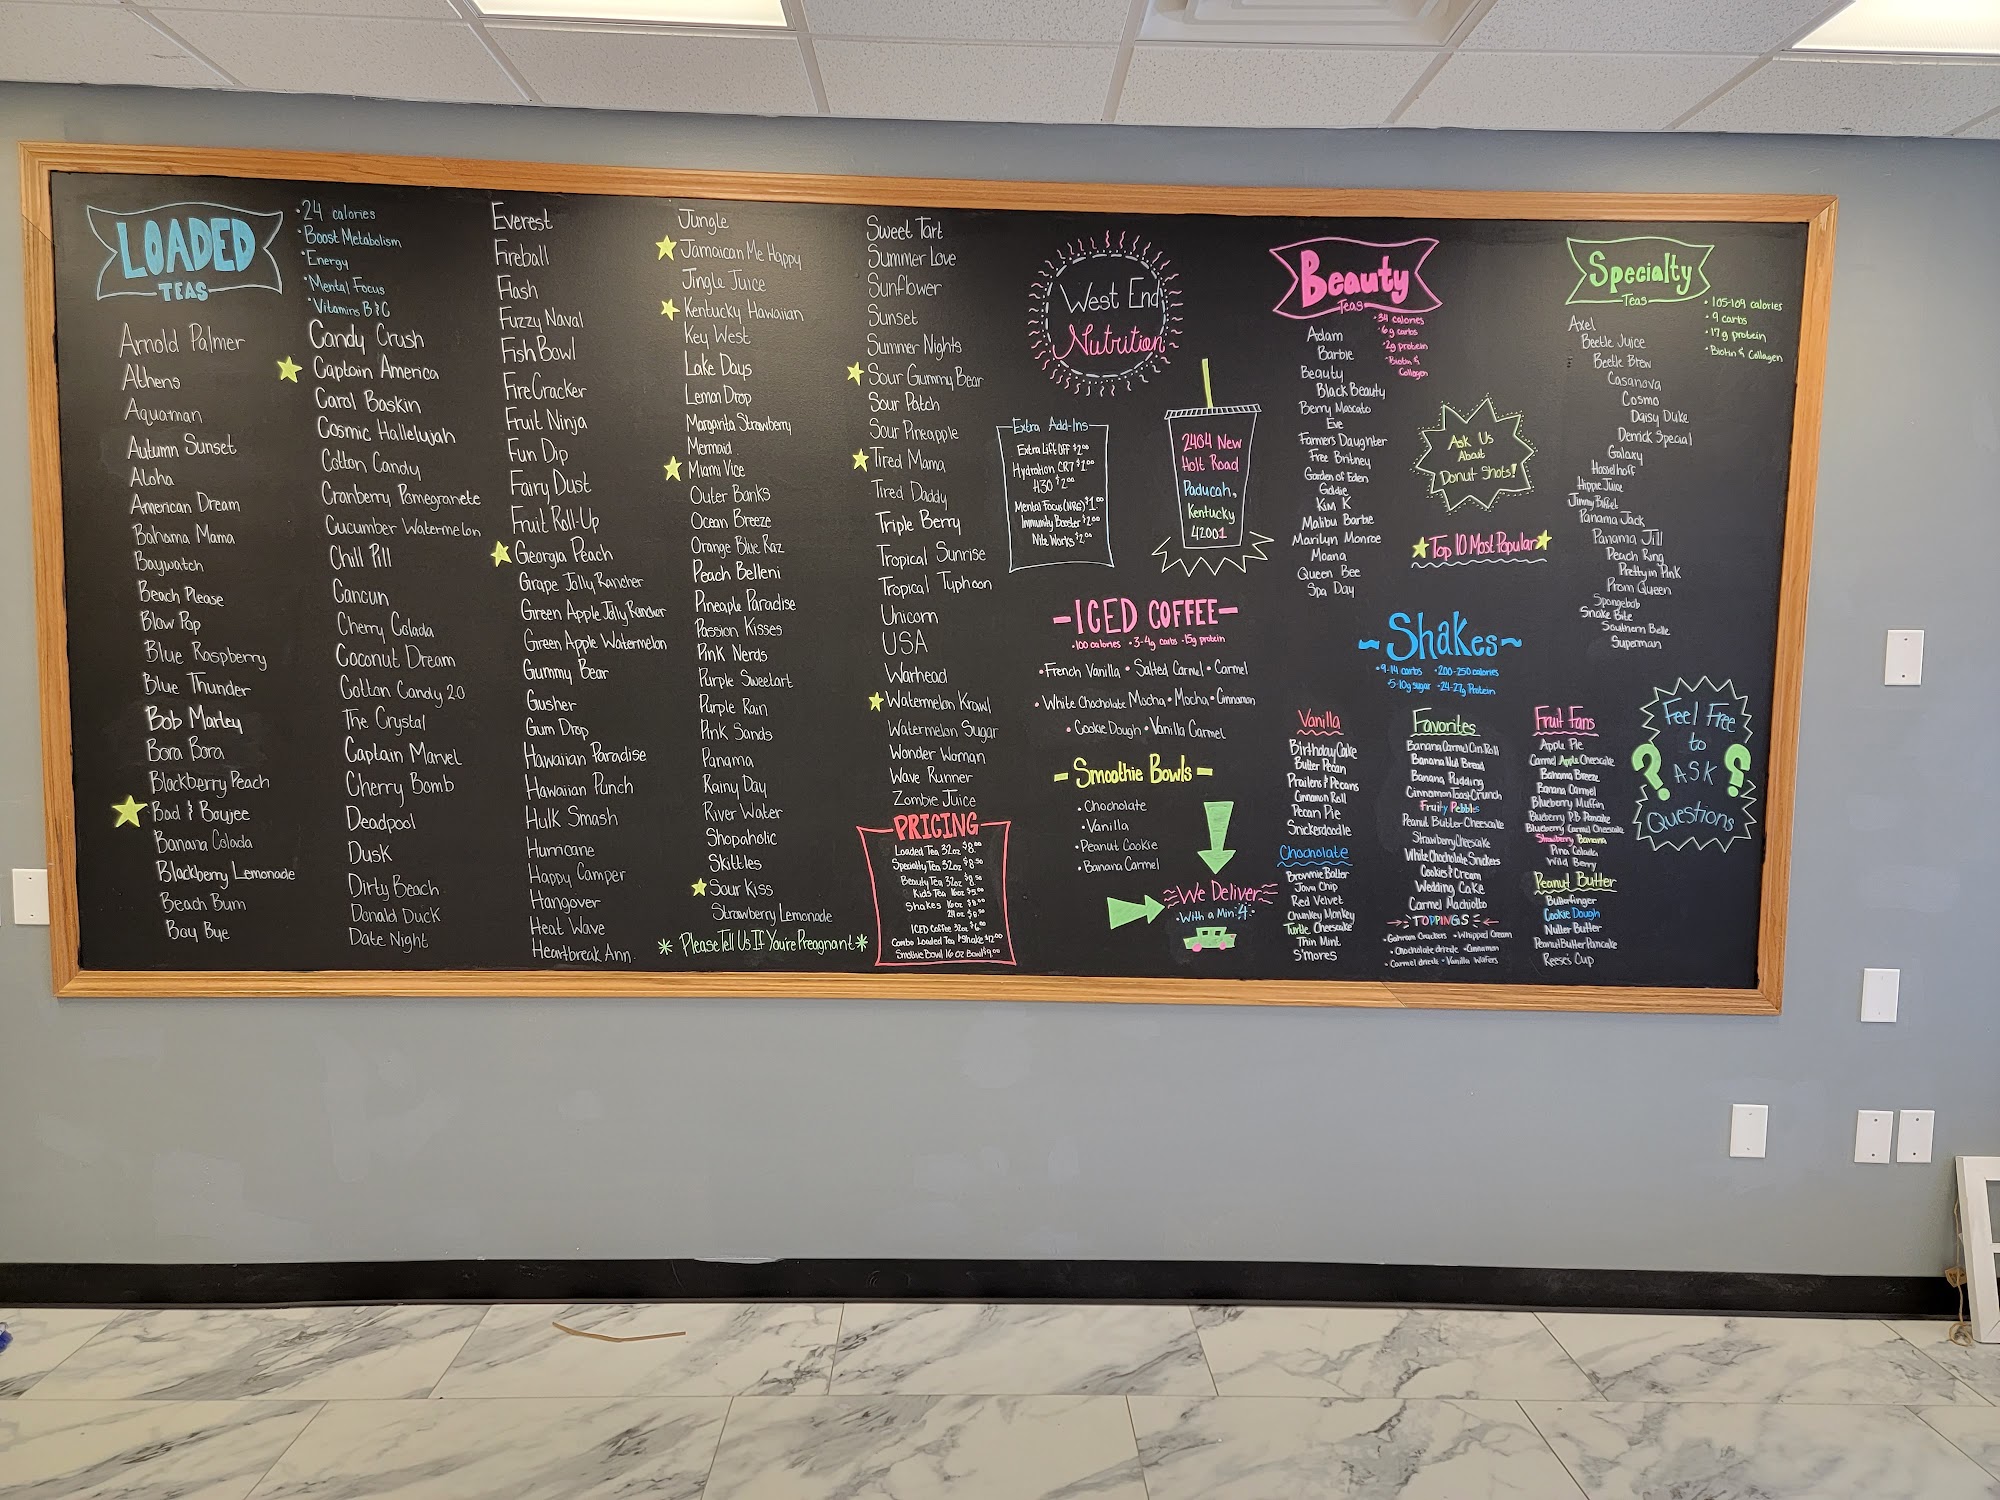 LOADED
TEAS
•24 calories
•Boost Metabolism
•Energy
•Mental Focus
•Vitamins B & C
Arnold Palmer
Athens
Aquaman
Autumn Sunset
Aloha
American Dream
Bahama Mama
Baywatch
Beach Please
Blow Pop
Blue Raspberry
Blue Thunder
Bob Marley
Bora Bora
Blackberry Peach
Bad & Boujee
Banana Colada
Blackberry Lemonade
Beach Bum
Bay Bye
Candy Crush
Captain America
Carol Baskin
Cosmic Hallelujah
Cotton Candy
Cranberry Pomegranete
Cucumber Watermelon
Chill Pill
Cancun
Cherry Colada
Coconut Dream
Cotton Candy 2.0
The Crystal
Captain Marvel
Cherry Bomb
Deadpool
Dusk
Dirty Beach
Donald Duck
Date Night
Everest
Fireball
Flash
Fuzzy Naval
Fish Bowl
Fire Cracker
Fruit Ninja
Fun Dip
Fairy Dust
Fruit Roll-Up
Georgia Peach
Grape Jolly Rancher
Green Apple Jolly Rancher
Green Apple Watermelon
Gummy Bear
Gusher
Gum Drop
Hawaiian Paradise
Hawaiian Punch
Hulk Smash
Hurricane
Happy Camper
Hangover
Heat Wave
Heartbreak Ann
Jungle
Jamaican Me Happy
Jingle Juice
Kentucky Hawaiian
Key West
Lake Days
Lemon Drop
Margarita Strawberry
Mermaid
Miami Vice
Outer Banks
Ocean Breeze
Orange Blue Raz
Peach Belleni
Pineaple Paradise
Passion Kisses
Pink Nerds
Purple Sweetart
Purple Rain
Pink Sands
Panama
Rainy Day
River Water
Shopaholic
Skittles
Sour Kiss
Strawberry Lemonade
* Please Tell Us If You're Preagnant *
Sweet Tart
Summer Love
Sunflower
Sunset
Summer Nights
Sour Gummy Bear
Sour Patch
Sour Pineapple
Tired Mama
Tired Daddy
Triple Berry
Tropical Sunrise
Tropical Typhoon
Unicorn
USA
Warhead
Watermelon Krawl
Watermelon Sugar
Wonder Woman
Wave Runner
Zombie Juice
PRICING
Loaded Tea 32oz $8.00
Specialty Tea 32oz $8.50
Beauty Tea 32oz $8.50
Kids Tea 16oz $5.00
Shakes 16oz $8.00
24 oz $8.50
ICED Coffee 32oz $6.00
Combo Loaded Tea & Shake $12.00
Smothie Bowl 16 oz Bowl $9.00
West End
Nutrition
Extra Add-Ins
Extra Liftoff $2.00
Hydration CR7 $1.00
H30 $2.00
Mental Focus (NRG) $1.00
Immunity Booster $2.00
Nite Works $2.00
2404 New
Holt Road
Paducah,
Kentucky
42001
-ICED COFFEE-
•100 calories •3-4g carbs •15g protein
•French Vanilla • Salted Carmel • Carmel
•White Chocholate Mocha • Mocha • Cinnamon
•Cookie Dough • Vanilla Carmel
-Smoothie Bowls-
• Chocholate
• Vanilla
• Peanut Cookie
• Banana Carmel
We Deliver
•With a Min 4•
Beauty
Teas
•34 calories
•6g carbs
•2g protein
•Biotin &
Collagen
Adam
Barbie
Beauty
Black Beauty
Berry Moscato
Eve
Farmers Daughter
Free Britney
Garden of Eden
Goldie
Kim K
Malibu Barbie
Marilyn Monroe
Moana
Queen Bee
Spa Day
Ask Us
About
Donut Shots!
Top 10 Most Popular
Specialty
Teas
•105-109 calories
•9 carbs
•17g protein
•Biotin & Collagen
Axel
Beetle Juice
Beetle Brew
Casanova
Cosmo
Daisy Duke
Derrick Special
Galaxy
Hasselhoff
Hippie Juice
Jimmy Buffet
Panama Jack
Panama Jill
Peach Ring
Pretty in Pink
Prom Queen
Spongebob
Snake Bite
Southern Belle
Superman
~Shakes~
•9-14 carbs •200-250 calories
•5-10g sugar •24-27g Protein
Vanilla
Birthday Cake
Butter Pecan
Prailens & Pecans
Cinnamon Roll
Pecan Pie
Snickerdoodle
Chocholate
Brownie Batter
Java Chip
Red Velvet
Chunky Monkey
Turtle Cheesecake
Thin Mint
S'mores
Favorites
Banana Carmel Cin Roll
Banana Nut Bread
Banana Pudding
Cinnamon Toast Crunch
Fruity Pebbles
Peanut Butter Cheesecake
Strawberry Cheesecake
White Chocholate Snickers
Cookies & Cream
Wedding Cake
Carmel Machiolto
TOPPINGS
•Gahram Crackers •Whipped Cream
•Chocholate drizzle •Cinnamon
•Carmel drizzle •Vanilla Wafers
Fruit Fans
Apple Pie
Carmel Apple Cheesecake
Bahama Breeze
Banana Carmel
Blueberry Muffin
Blueberry P.B Pancake
Blueberry Carmel Cheescake
Strawberry Banana
Pina Colada
Wild Berry
Peanut Butter
Butterfinger
Cookie Dough
Nutter Butter
Peanut Butter Pancake
Reese's Cup
Feel Free
to
? ASK ?
Questions